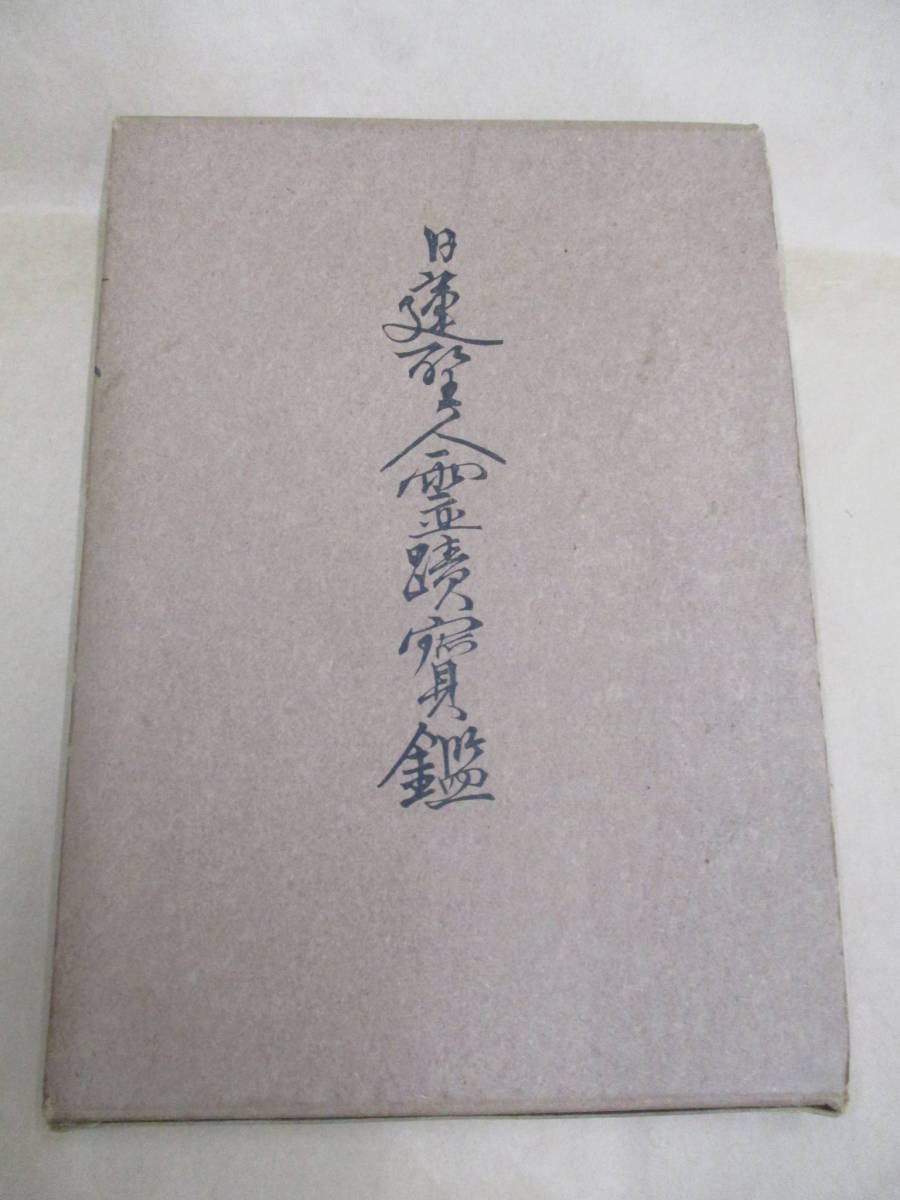 日蓮聖人霊蹟寳鑑